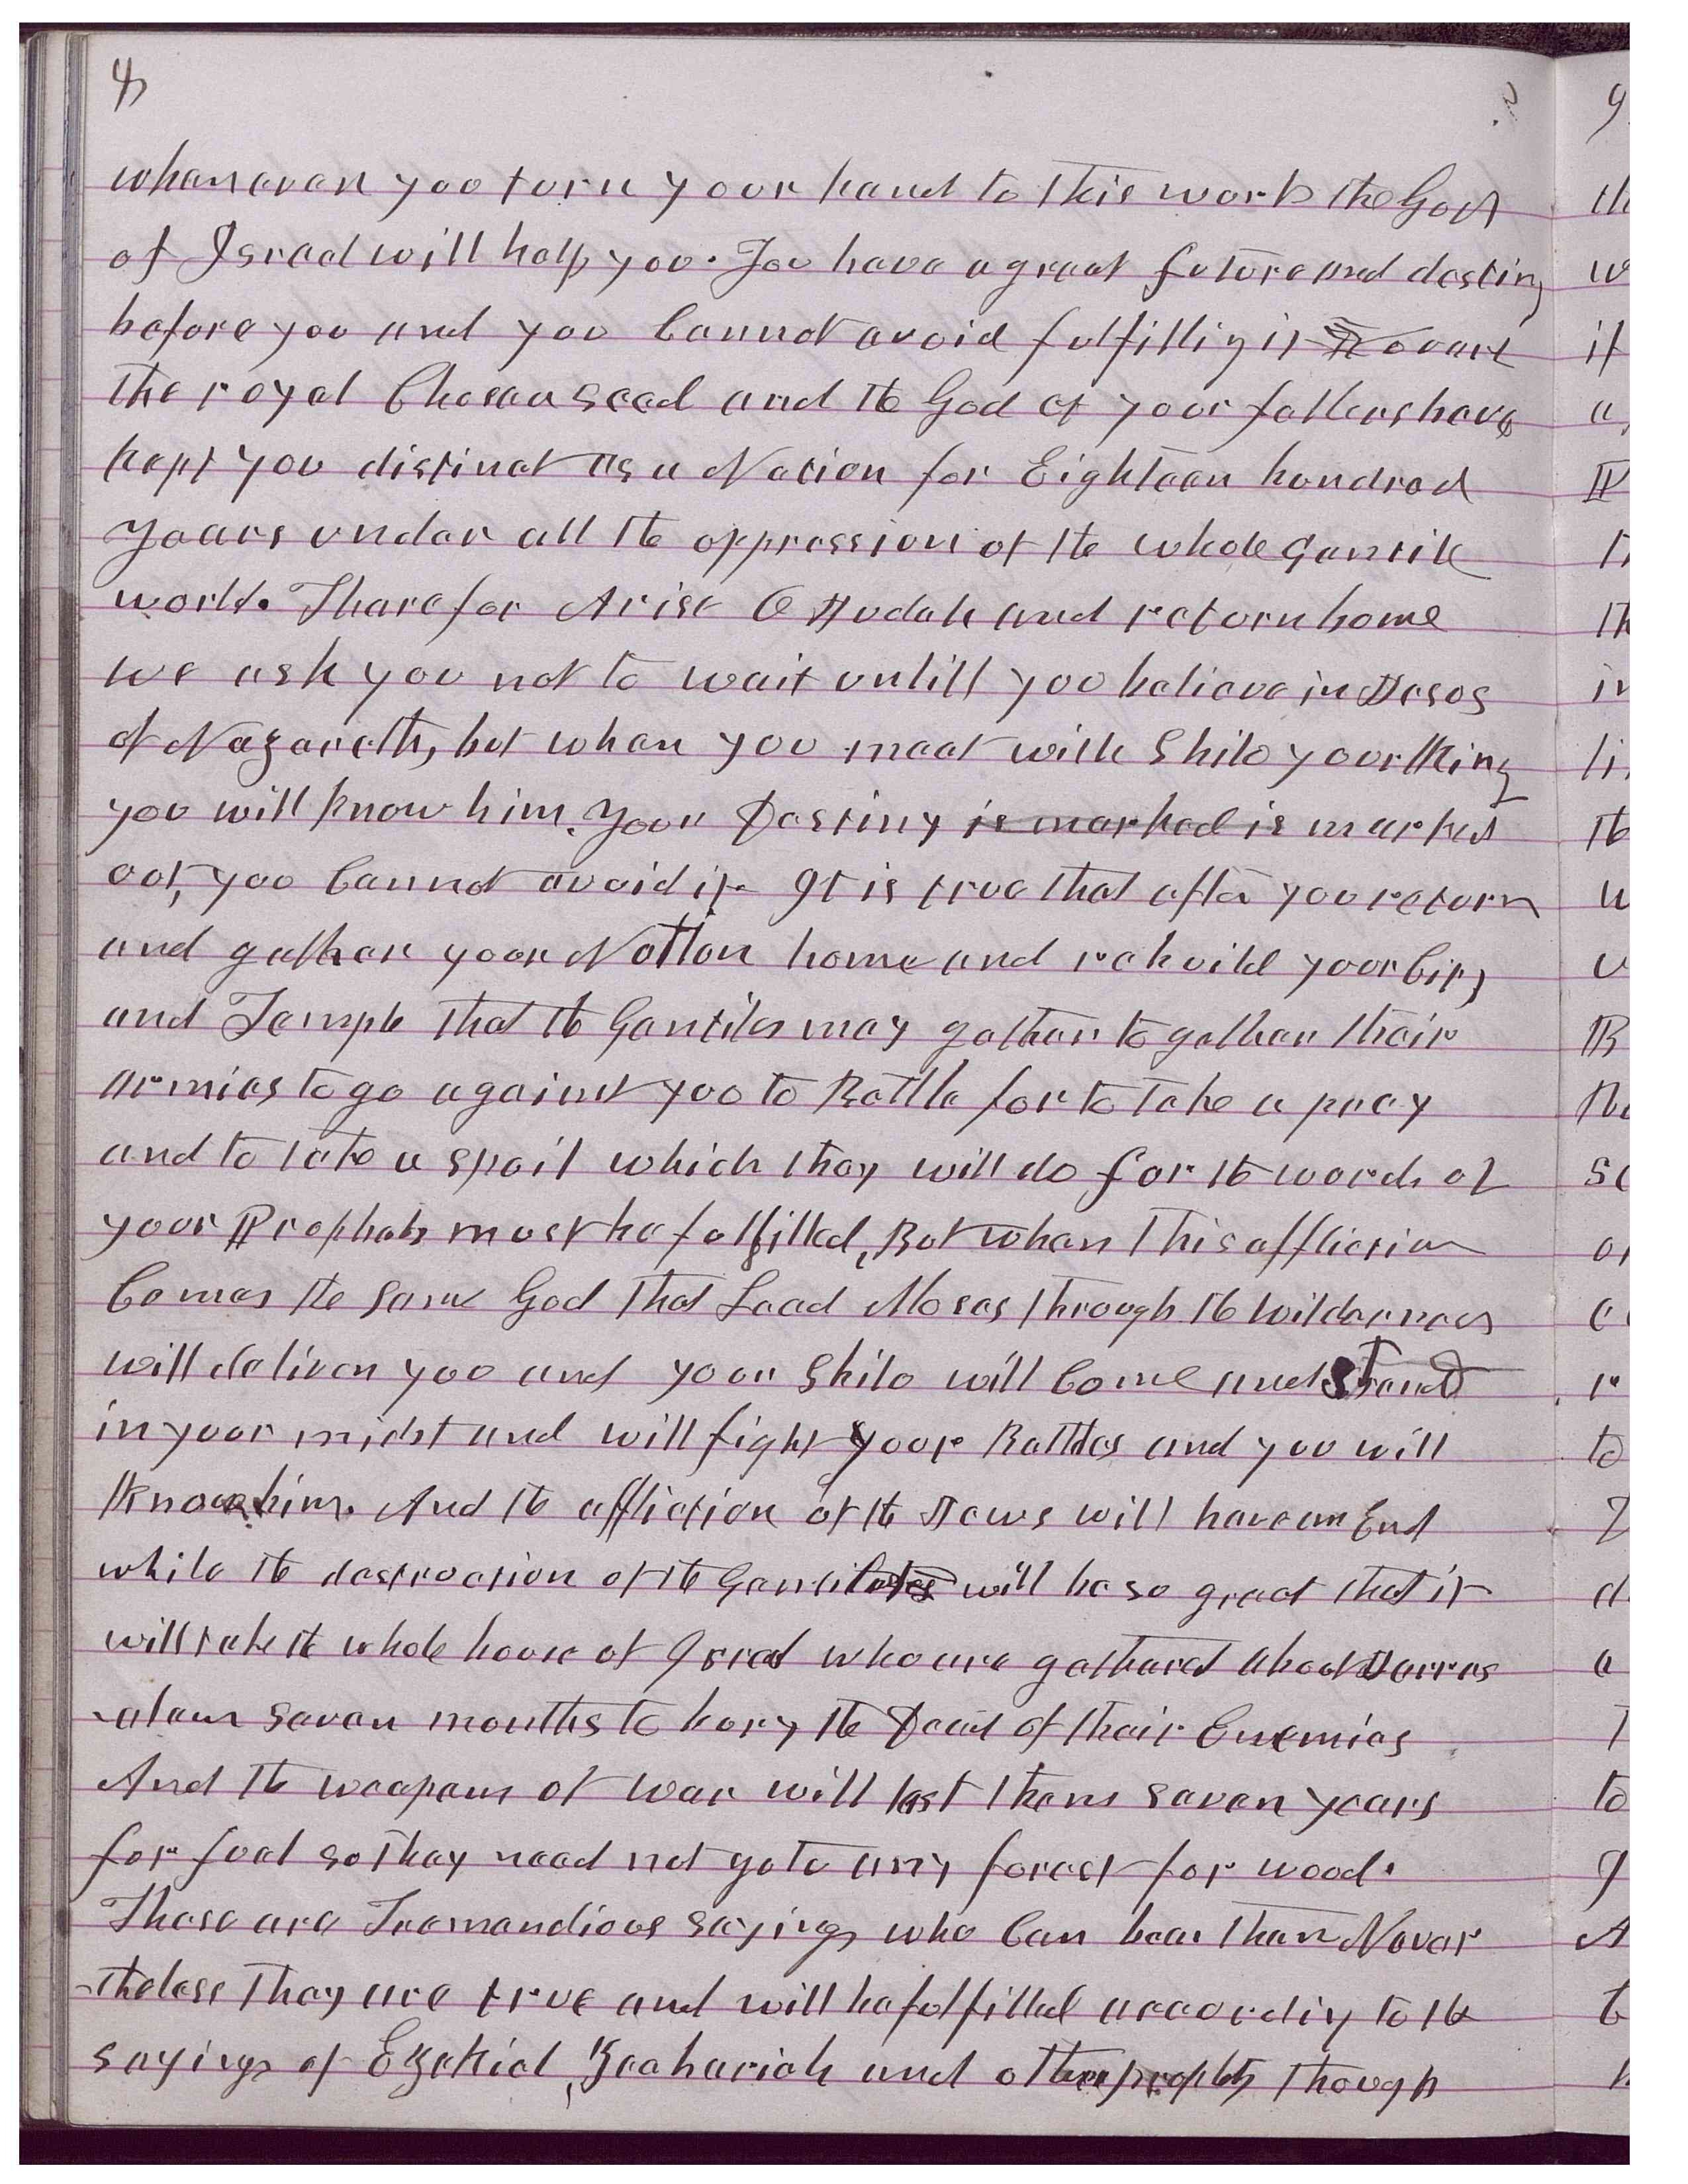 4
whenever you turn your hand to this work the God
of Israel will help you. You have a great future and destiny
before you and you Cannot avoid fulfilling it You are
the royal Chosen seed and the God of your fathers have
kept you distinct as a Nation for Eighteen hundred
years under all the oppression of the whole Gentile
world. Therefor Arise O Judah and return home
we ask you not to wait untill you believe in Jesus
of Nazareth, but when you meet with Shilo your King
you will know him. Your Destiny is marked is marked
out, you Cannot avoid it. It is true that after you return
and gather your Nation home and rebuild your City
and Temple that the Gentiles may gather together their
armies to go against you to Battle for to take a prey
and to take a spoil which they will do for the words of
your Prophets must be fulfilled, But when this affliction
Comes the same God that Lead Moses through the Wilderness
will deliver you and your Shilo will Come and Stand
in your midst and will fight your Battles and you will
Know him. And the affliction of the Jews will have an End
while the destruction of the Gentiles will be so great that it
will take the whole house of Israel who are gathered about Jerrus
-alem seven months to bury the Dead of their Enemies
And the weapons of war will last them seven years
for fuel so they need not go to any forest for wood.
These are Tremandious sayings who Can bear them Never
-theless They are true and will be fulfilled according to the
sayings of Ezekiel, Zechariah and other prophets though